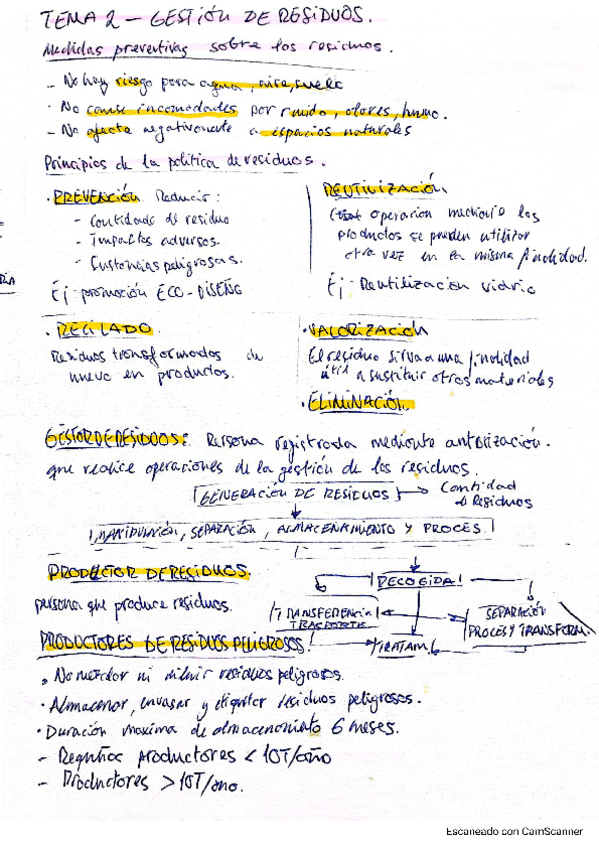 TEMA 2 - GESTIÓN DE RESIDUOS.
Medidas preventivas sobre los residuos.
- No hay riesgo para agua, aire, suelo
· No cause incomodades por ruido, olores, humo.
- No afecte negativamente a espacios naturales
Principios de la política de residuos.
· PREVENCIÓN. Reducir:
- Cantidade de residuo
- Impactos adversos.
- Sustancias peligrosas.
Ej: promoción ECO-DISEÑO
REUTILIZACIÓN.
operación mediante los
productos se pueden utilizar
otra vez en la misma finalidad.
Ej: Reutilización vidrio
· RECILADO.
Residuos transformados de
nuevo en productos.
· VALORIZACIÓN
El residuo sirva a una finalidad
útil a sustituir otros materiales
· ELIMINACIÓN.
GESTOR DE RESIDUOS: Persona registrada mediante autorización.
que realice operaciones de la gestión de los residuos.
GENERACIÓN DE RESIDUOS → Cantidad
Residuos
MANIPULACIÓN, SEPARACIÓN, ALMACENAMIENTO Y PROCES.
PRODUCTOR DE RESIDUOS.
persona que produce residuos.
RECOGIDA
TRANSFERENCIA
TRASPORTE
SEPARACIÓN
PROCES Y TRANSFORM.
TRATAM.
PRODUCTORES DE RESIDUOS PELIGROSOS!
· No mezclar ni diluir residuos peligrosos.
· Almacenar, envasar y etiquetar residuos peligrosos.
· Duración maxima de almacenamiento 6 meses.
- Pequeños productores < 10T/año
- Productores > 10T/ano.
Escaneado con CamScanner